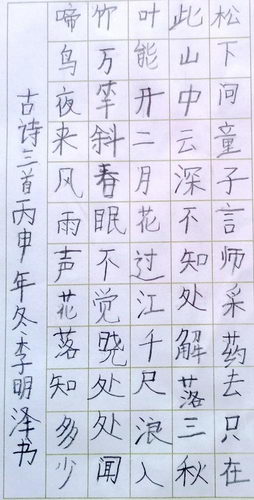 松下问童子言师采药去只在
此山中云深不知处解落三秋
叶能开二月花过江千尺浪入
竹万竿斜春眠不觉晓处处闻
啼鸟夜来风雨声花落知多少
古诗三首丙申年冬李明泽书